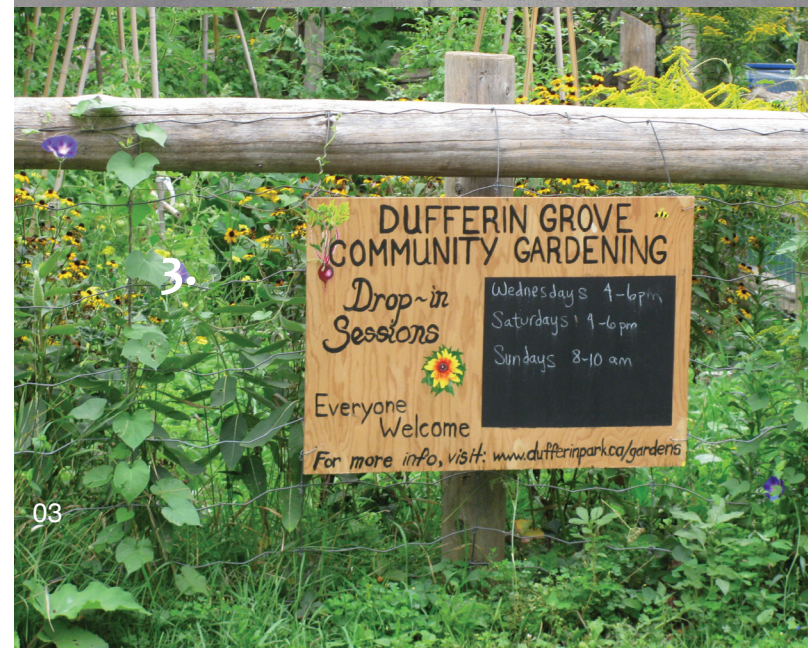 DUFFERIN GROVE
COMMUNITY GARDENING
Drop-in
Sessions
Wednesdays 4-6pm
Saturdays 4-6pm
Sundays 8-10 am
Everyone
Welcome
For more info, visit: www.dufferinpark.ca/gardens
3.
03